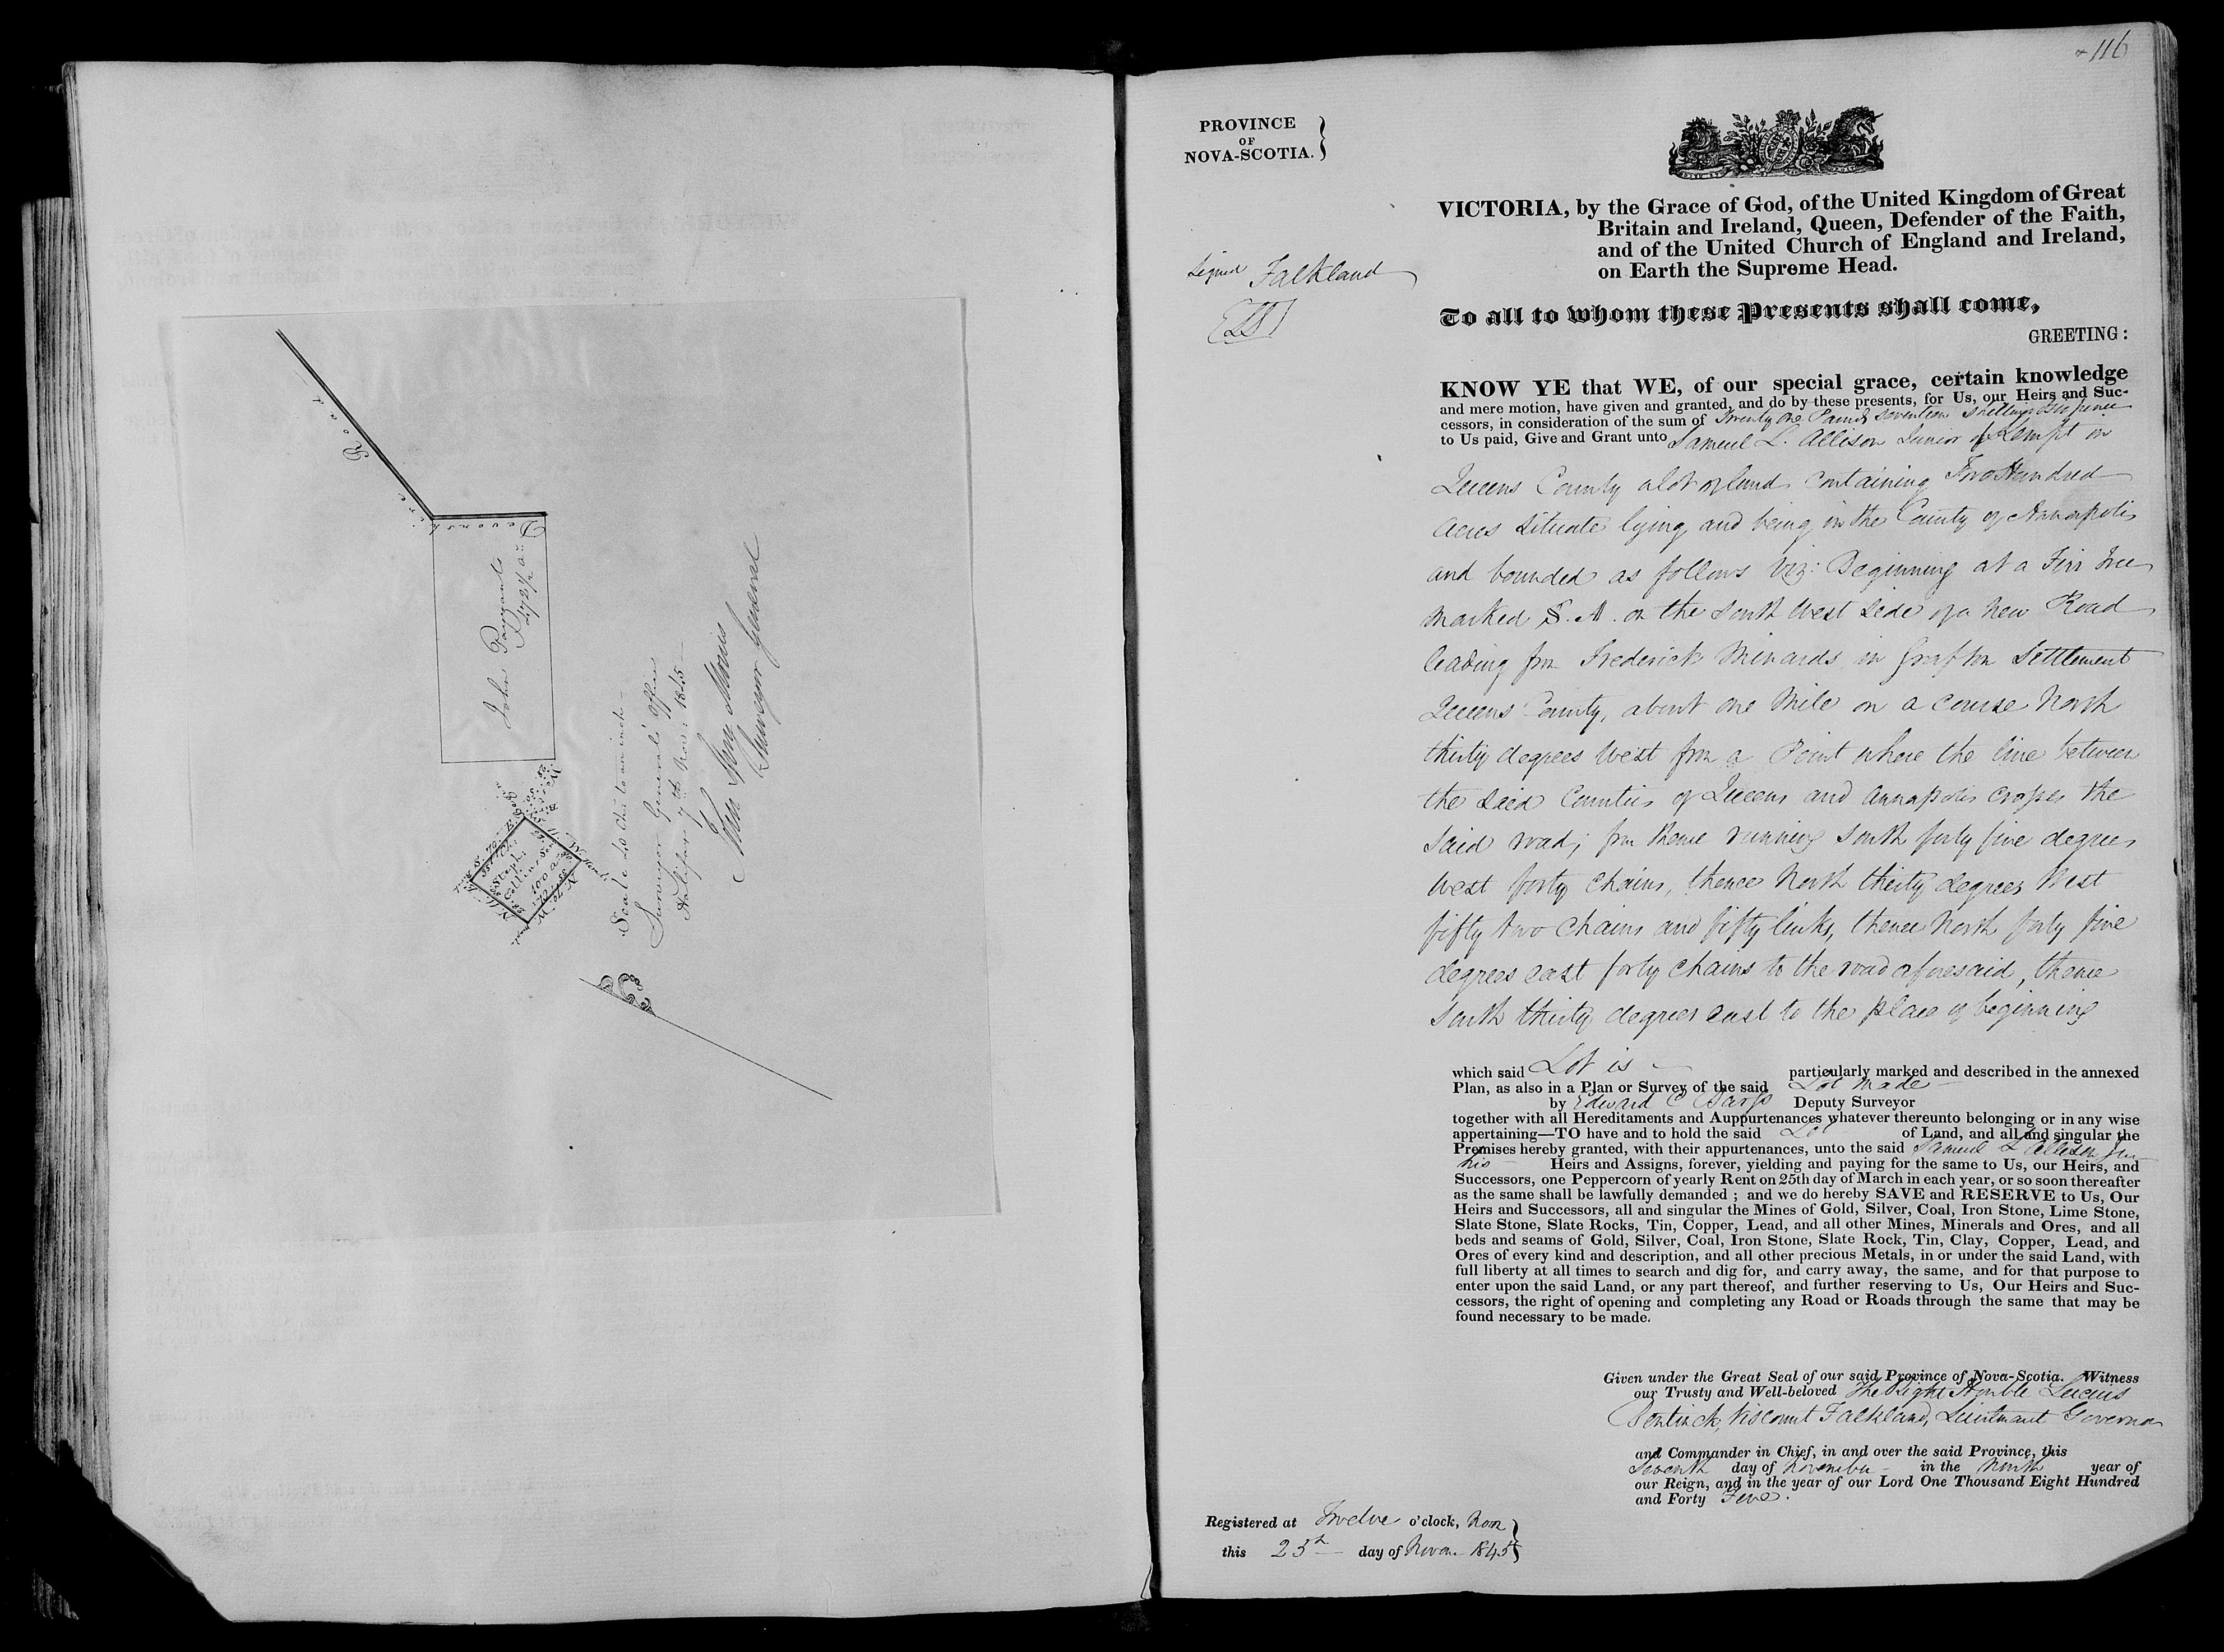 Road
Devonshire
John Payzants
472 1/2 ac
Stephen
Collins
100 ac
Scale 40 chs to an inch
Surveyor General's Office
Halifax 7th Nov: 1845
John Spry Morris
Surveyor General
116
PROVINCE
OF
NOVA-SCOTIA.
VICTORIA, by the Grace of God, of the United Kingdom of Great
Britain and Ireland, Queen, Defender of the Faith,
and of the United Church of England and Ireland,
on Earth the Supreme Head.
Signed Falkland
LS
To all to whom these Presents shall come,
GREETING:
KNOW YE that WE, of our special grace, certain knowledge
and mere motion, have given and granted, and do by these presents, for Us, our Heirs and Suc-
cessors, in consideration of the sum of Twenty one Pounds seventeen shillings six pence
to Us paid, Give and Grant unto Samuel L. Allison Junior of Kempt in
Queens County a lot of land containing Two Hundred
acres situate lying and being in the County of Annapolis
and bounded as follows Viz: Beginning at a Firr Tree
marked S. A. on the South West side of a new Road
leading from Frederick Minards in Grafton Settlement
Queens County, about one Mile on a course North
thirty degrees West from a Point where the line between
the said Counties of Queens and Annapolis crosses the
said road; from thence running South forty five degrees
West forty chains, thence North thirty degrees West
fifty two chains and fifty links, thence North forty five
degrees east forty chains to the road aforesaid, thence
South thirty degrees east to the place of beginning
which said Lot is particularly marked and described in the annexed
Plan, as also in a Plan or Survey of the said Lot made
by Edward C Deputy Surveyor
together with all Hereditaments and Auppurtenances whatever thereunto belonging or in any wise
appertaining—TO have and to hold the said Lot of Land, and all and singular the
Premises hereby granted, with their appurtenances, unto the said Samuel L Allison Jun
his Heirs and Assigns, forever, yielding and paying for the same to Us, our Heirs, and
Successors, one Peppercorn of yearly Rent on 25th day of March in each year, or so soon thereafter
as the same shall be lawfully demanded ; and we do hereby SAVE and RESERVE to Us, Our
Heirs and Successors, all and singular the Mines of Gold, Silver, Coal, Iron Stone, Lime Stone,
Slate Stone, Slate Rocks, Tin, Copper, Lead, and all other Mines, Minerals and Ores, and all
beds and seams of Gold, Silver, Coal, Iron Stone, Slate Rock, Tin, Clay, Copper, Lead, and
Ores of every kind and description, and all other precious Metals, in or under the said Land, with
full liberty at all times to search and dig for, and carry away, the same, and for that purpose to
enter upon the said Land, or any part thereof, and further reserving to Us, Our Heirs and Suc-
cessors, the right of opening and completing any Road or Roads through the same that may be
found necessary to be made.
Given under the Great Seal of our said Province of Nova-Scotia. Witness
our Trusty and Well-beloved The Right Honble Lucius
Bentinck, Viscount Falkland, Lieutenant Governor
and Commander in Chief, in and over the said Province, this
Seventh day of November in the Ninth year of
our Reign, and in the year of our Lord One Thousand Eight Hundred
and Forty Five.
Registered at Twelve o'clock, Noon
this 25th day of Novem 1845